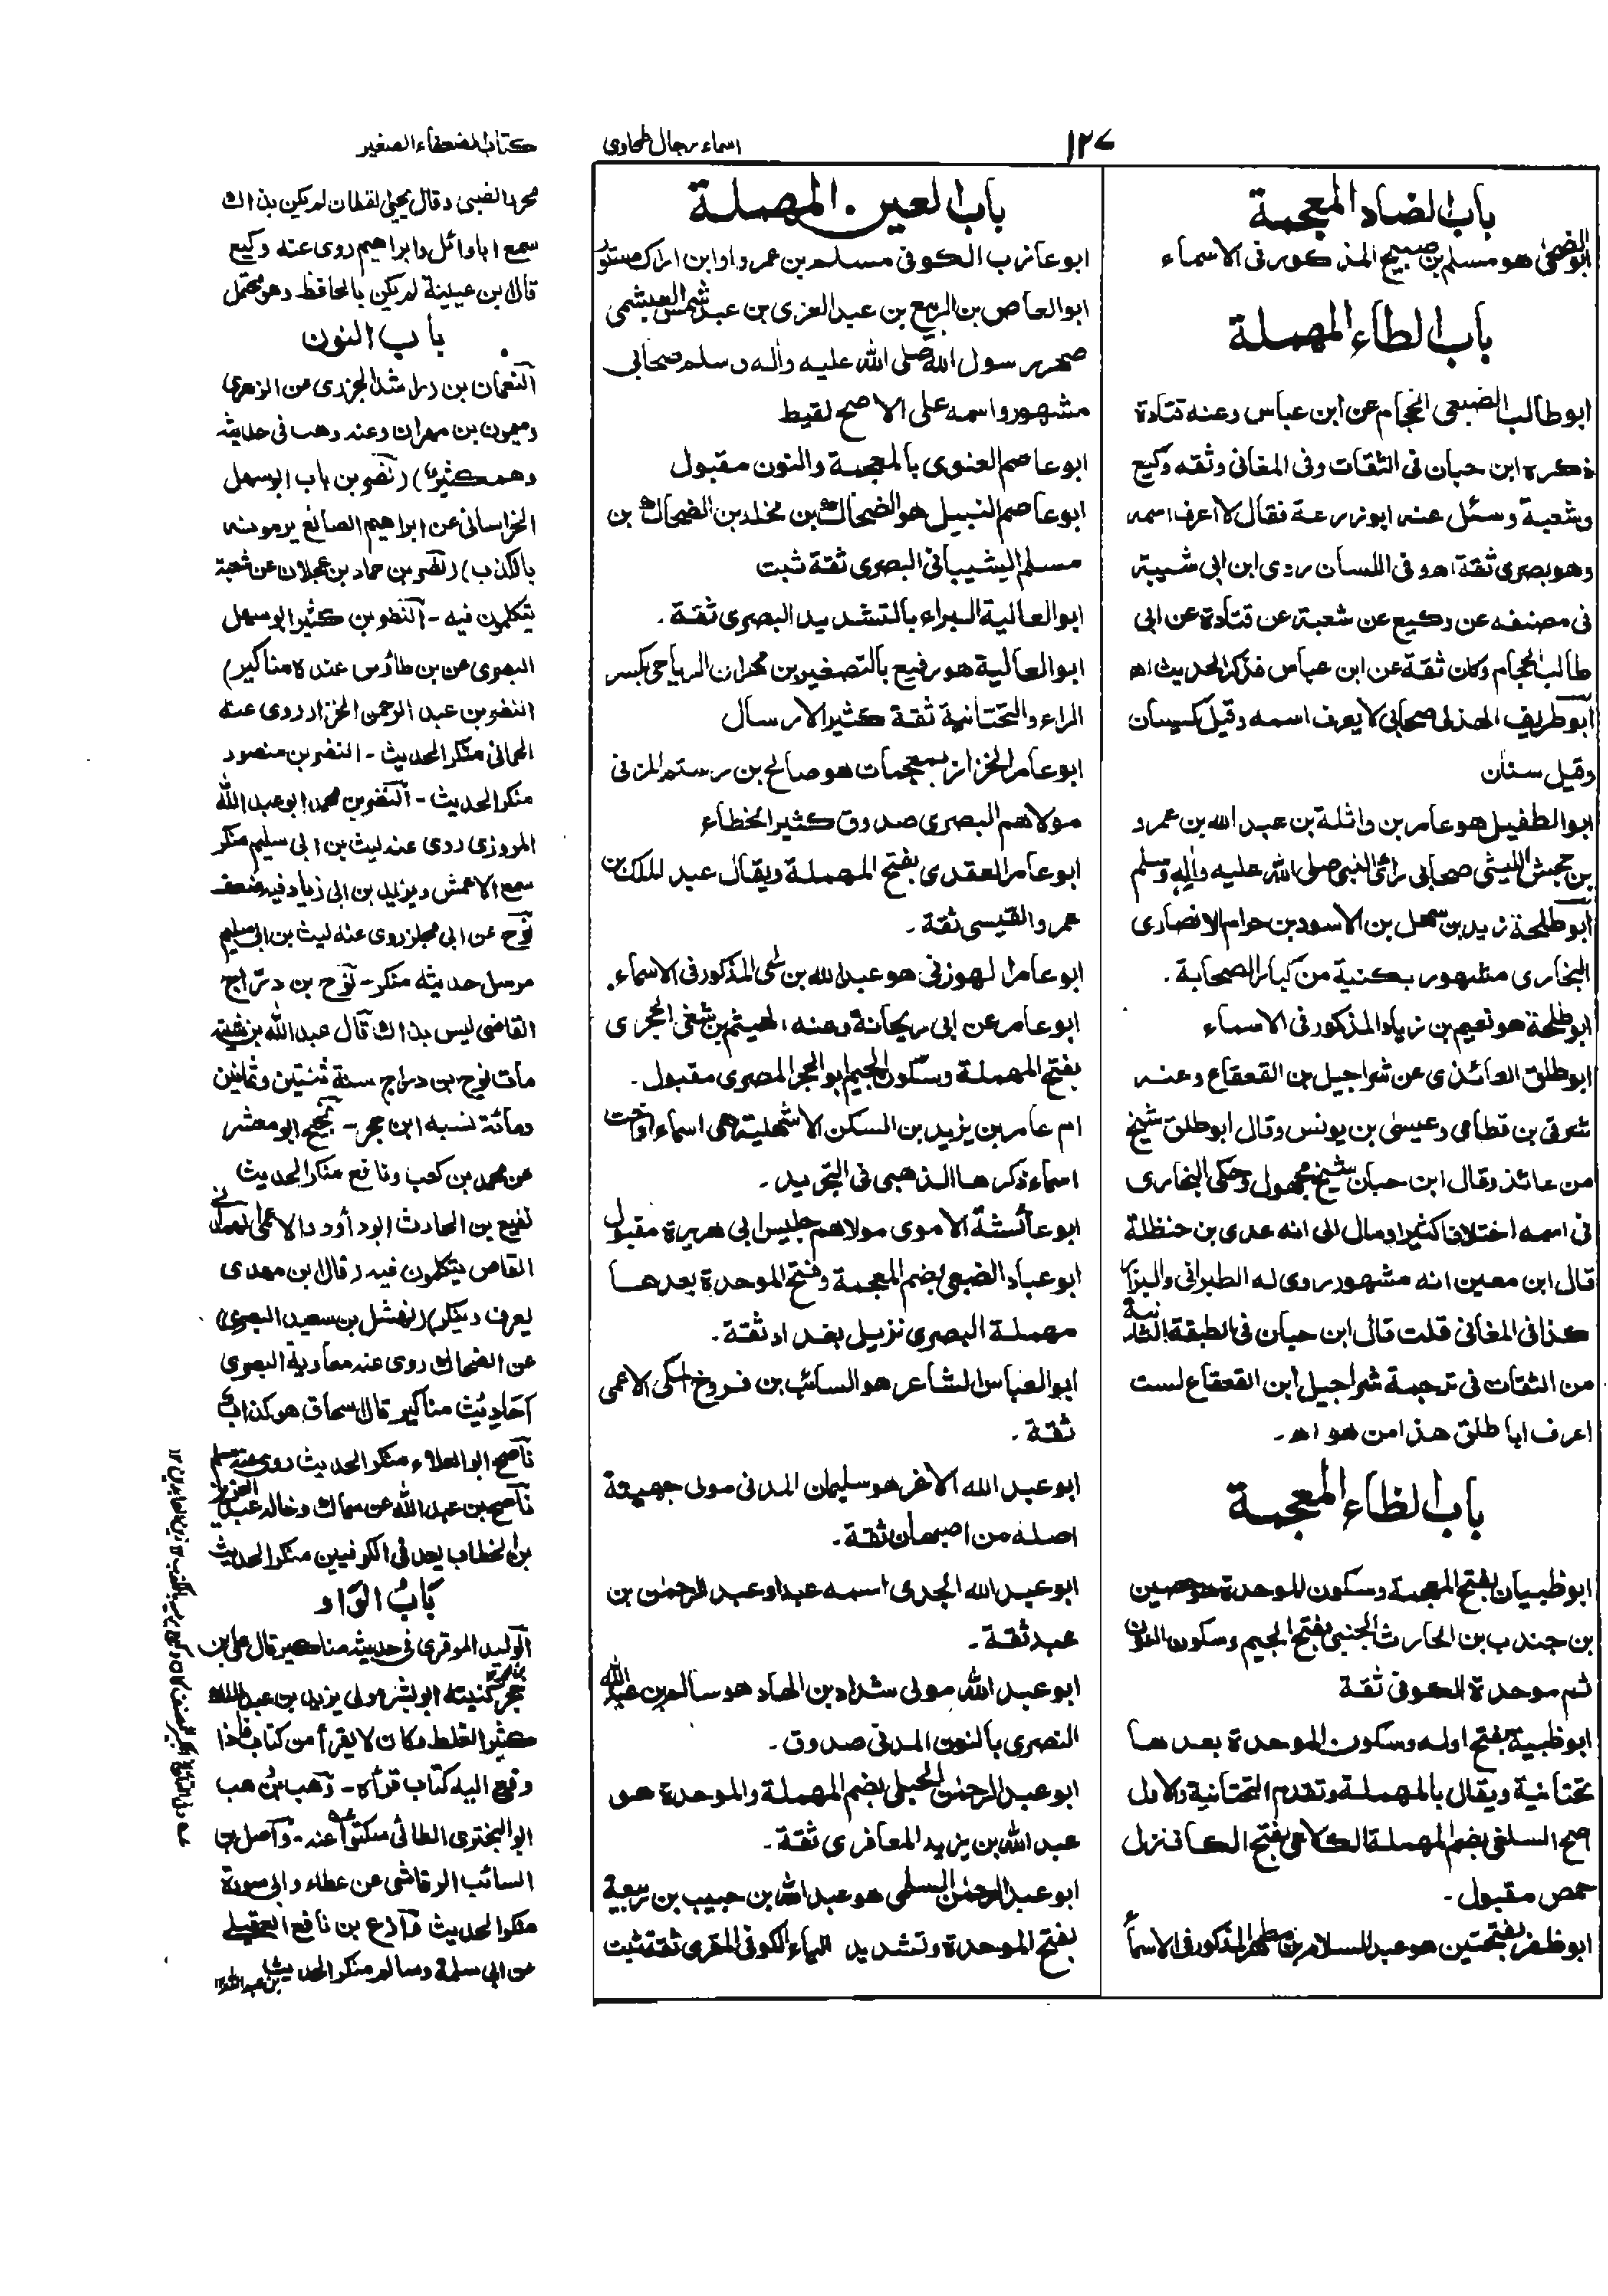 ١٢٧
اسماء رجال طحاوى
كتاب الضعفاء الصغير
باب الضاد المعجمة
ابو الضحى هو مسلم بن صبيح المذكور فى الاسماء
باب الطاء المهملة
ابو طالب الضبعى الحجام عن ابن عباس وعنه قتادة
ذكره ابن حبان فى الثقات وفى المغانى وثقه وكيع
وشعبة وسئل عنه ابو زرعة فقال لا اعرف اسمه
وهو بصرى ثقة اهو فى اللسان روى ابن ابى شيبة
فى مصنفه عن وكيع عن شعبة عن قتادة عن ابى
طالب الحجام وكان ثقة عن ابن عباس فذكر الحديث اھ
ابو طريف الهذلى صحابى لا يعرف اسمه وقيل كيسان
وقيل سنان
ابو الطفيل هو عامر بن واثلة بن عبد الله بن عمرو
بن جحش الليثى صحابى رأى النبى صلى الله عليه واٰله وسلم
ابو طلحة زيد بن سهل بن الاسود بن حرام الانصارى
البخارى مشهور بكنية من كبار الصحابة.
ابو طلحة هو نعيم بن زياد المذكور فى الاسماء
ابو طلق العائذى عن شراجيل بن القعقاع وعنه
شرقى بن قطامى وعيسى بن يونس وقال ابو طلق شيخ
من عائذ وقال ابن حبان شيخ مجهول وحكى البخارى
فى اسمه اختلافا كثيرا ومال الى انه عدى بن حنظلة
قال ابن معين انه مشهور روى له الطبرانى والبزار
كذا فى المغانى قلت قال ابن حبان فى الطبقة الثانية
من الثقات فى ترجمة شراجيل ابن القعقاع لست
اعرف ابا طلق هذا من هو اھ.
باب الظاء المعجمة
ابو ظبيان بفتح المعجمة وسكون الموحدة هو حصين
بن جندب بن الحارث الجنبى بفتح الجيم وسكون النون
ثم موحدة الكوفى ثقة
ابو ظبية بفتح اوله وسكون الموحدة بعدها
تحتانية ويقال بالمهملة وتقدم التحتانية والاول
اصح السلفى بضم المهملة الكلاعى بفتح الكاف نزل
حمص مقبول.
ابو ظفر بفتحتين هو عبد السلام بن مطهر المذكور فى الاسماء
باب العين المهملة
ابو عازب الكوفى مسلم بن عمرو او ابن اراك مستور
ابو العاص بن الربيع بن عبد العزى بن عبد شمس العبشمى
صهر رسول الله صلى الله عليه واٰله وسلم صحابى
مشهور واسمه على الاصح لقيط
ابو عاصم العنوى بالمعجمة والنون مقبول
ابو عاصم النبيل هو الضحاك بن مخلد بن الضحاك بن
مسلم الشيبانى البصرى ثقة ثبت
ابو العالية البراء بالتشديد البصرى ثقة.
ابو العالية هو رفيع بالتصغير بن مهران الرياحى بكسر
الراء والتحتانية ثقة كثير الارسال
ابو عامر الخزاز بمعجمات هو صالح بن رستم المزنى
مولاهم البصرى صدوق كثير الخطاء
ابو عامر العقدى بفتح المهملة ويقال عبد الملك بن
عمرو القيسى ثقة.
ابو عامر الهوزنى هو عبد الله بن لحى المذكور فى الاسماء.
ابو عامر عن ابى ريحانة وعنه الهيثم بن شفى الحجرى
بفتح المهملة وسكون الجيم ابو الحجر المصرى مقبول.
ام عامر بن يزيد بن السكن الاشهلية هى اسماء او اخت
اسماء ذكرها الذهبى فى التجريد.
ابو عائشة الاموى مولاهم جليس ابى هريرة مقبول
ابو عباد الضبعى بضم المعجمة وفتح الموحدة بعدها
مهملة البصرى نزيل بغداد ثقة.
ابو العباس الشاعر هو السائب بن فروخ المكى الاعمى
ثقة.
ابو عبد الله الاغر هو سليمان المدنى مولى جهينة
اصله من اصبهان ثقة.
ابو عبد الله الجدى اسمه عبد او عبد الرحمٰن بن
عبد ثقة.
ابو عبد الله مولى شداد بن الهاد هو سالم بن عبد الله
النصرى بالنون المدنى صدوق.
ابو عبد الرحمٰن الحبلى بضم المهملة والموحدة هو
عبد الله بن يزيد المعافرى ثقة.
ابو عبد الرحمٰن السلمى هو عبد الله بن حبيب بن ربيعة
بفتح الموحدة وتشديد الياء الكوفى المقرى ثقة ثبت
محرر الضبى وقال يحيى القطان لم يكن بذاك
سمع ابا وائل وابراهيم روى عنه وكيع
قال ابن عيينة لم يكن بالحافظ وهو محتمل
باب النون
النعمان بن راشد الجزرى عن الزهرى
وميمون بن مهران وعنه وهب فى حديثه
وهم كثير) (نصر بن باب ابو سهل
الخراسانى عن ابراهيم الصائغ يرمونه
بالكذب) (نصر بن حماد بن عجلان عن شعبة
يتكلمون فيه - النضر بن كثير ابو سهل
البصرى عن بن طاؤس عنده مناكير)
النضر بن عبد الرحمن الخزاز روى عنه
الحمانى منكر الحديث - النضر بن منصور
منكر الحديث - النضر بن محمد ابو عبد الله
المروزى روى عنه ليث بن ابى سليم منكر
سمع الاعمش ويزيد بن ابى زياد فيه ضعف
نوح عن ابى مجلز روى عنه ليث بن ابى سليم
مرسل حديثه منكر - نوح بن دراج
القاضى ليس بذاك قال عبد الله بن شيبة
مات نوح بن دراج سنة ثنتين وثمانين
ومائة نسبه ابن حجر - نجيح ابو معشر
عن محمد بن كعب ونافع منكر الحديث
نفيع بن الحارث ابو داؤد الاعمى الهمدانى
القاص يتكلمون فيه وقال ابن مهدى
يعرف وينكر) (نهشل بن سعيد البصرى)
عن الضحاك روى عنه معاوية البصرى
احاديث مناكير قال اسحاق هو كذاب
ناصح ابو العلاء منكر الحديث روى عنه مسلم
ناصح بن عبد الله عن سماك وخاله عبد العزيز
بن الخطاب يعد فى الكوفيين منكر الحديث
باب الواو
الوليد الموقرى فى حديثه مناكير قال على بن
حجر كنيته ابو بشر مولى يزيد بن عبد الملك
كثير الغلط وكان لا يقرأ من كتابه فاذا
دفع اليه كتاب قرأه - وهب بن وهب
ابو البخترى الطائى سكتوا عنه - واصل بن
السائب الرقاشى عن عطاء وابى سورة
منكر الحديث وازع بن نافع العقيلى
عن ابى سلمة وسالم منكر الحديث
بن عبد الله ١٢